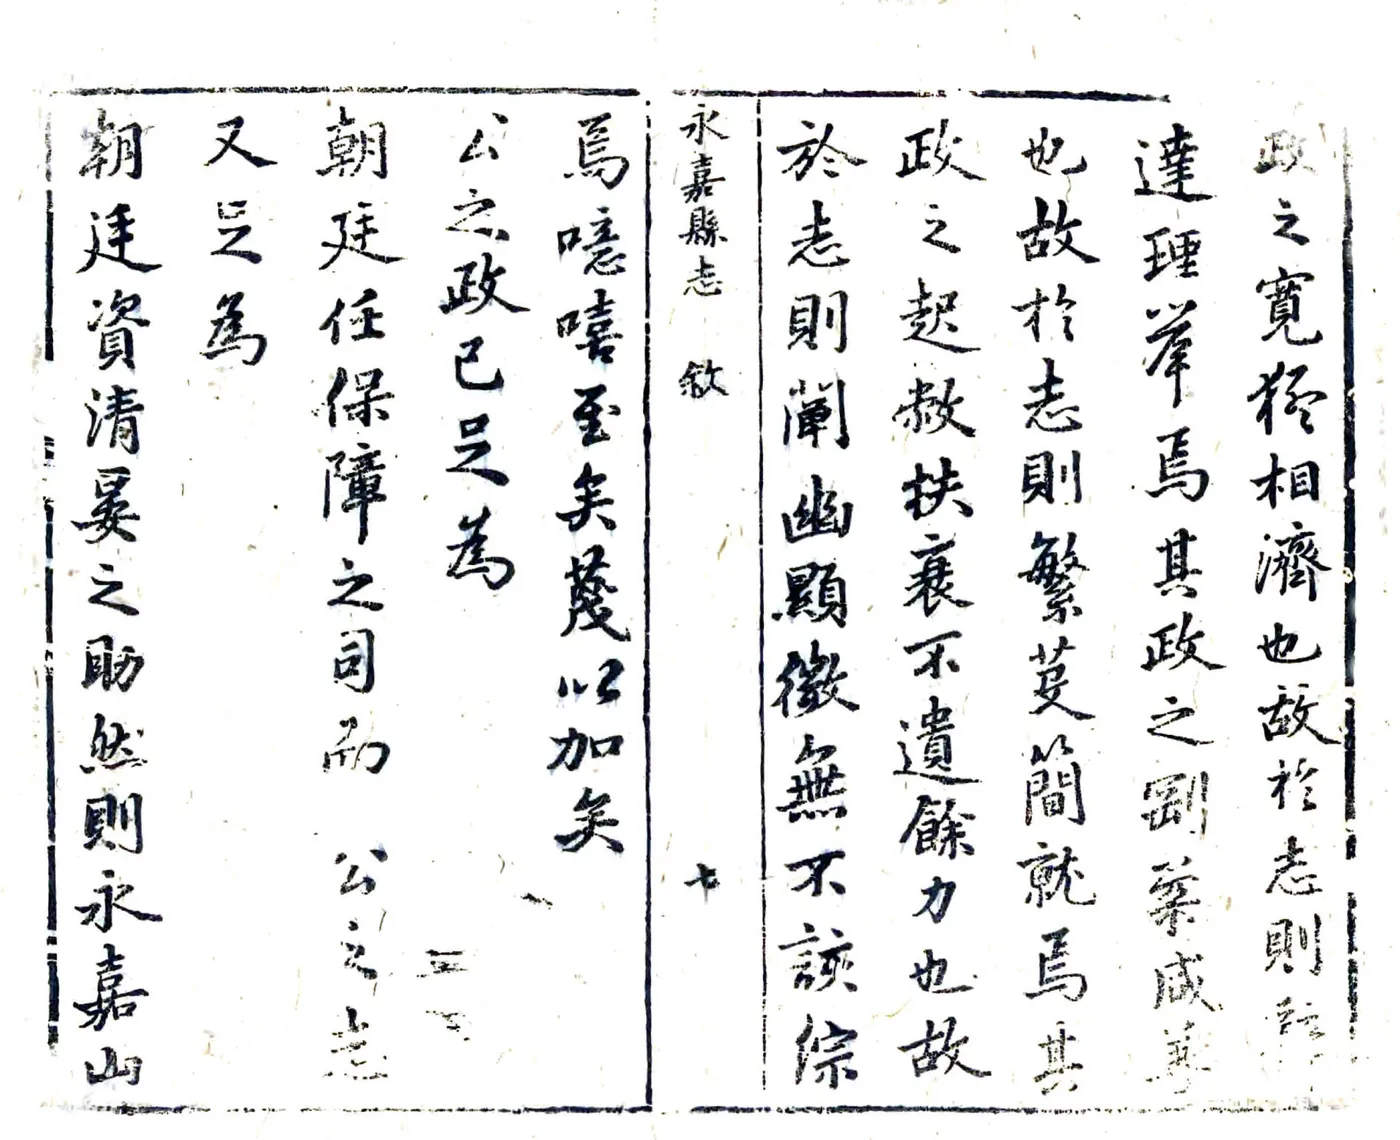 政之寬猛相濟也故於志則
達理舉焉其政之剛柔咸善
也故於志則繁芟簡就焉其
政之起敝扶衰不遺餘力也故
於志則闡幽顯微無不該綜
永嘉縣志 敘 七
焉噫嘻至矣蔑以加矣
公之政已足為
朝廷任保障之司而 公之志
又足為
朝廷資清晏之助然則永嘉山